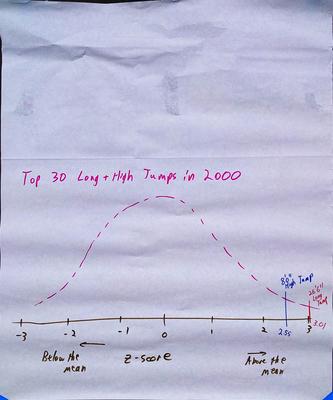 Top 30 Long + High Jumps in 2000
8'0" High Jump
28'6" Long Jump
-3 -2 -1 0 1 2 3
2.55 3.01
Below the mean
z-score
Above the mean